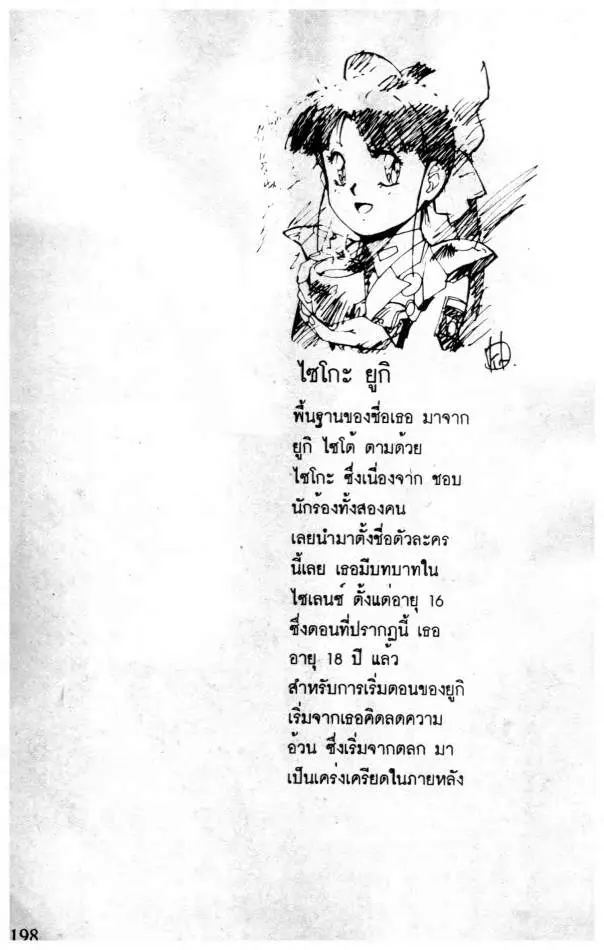 ไซโกะ ยูกิ
พื้นฐานของชื่อเธอ มาจาก
ยูกิ ไซโต้ ตามด้วย
ไซโกะ ซึ่งเนื่องจาก ชอบ
นักร้องทั้งสองคน
เลยนำมาตั้งชื่อตัวละคร
นี้เลย เธอมีบทบาทใน
ไซเลนซ์ ตั้งแต่อายุ 16
ซึ่งตอนที่ปรากฏนี้ เธอ
อายุ 18 ปี แล้ว
สำหรับการเริ่มตอนของยูกิ
เริ่มจากเธอคิดลดความ
อ้วน ซึ่งเริ่มจากตลก มา
เป็นเคร่งเครียดในภายหลัง
198